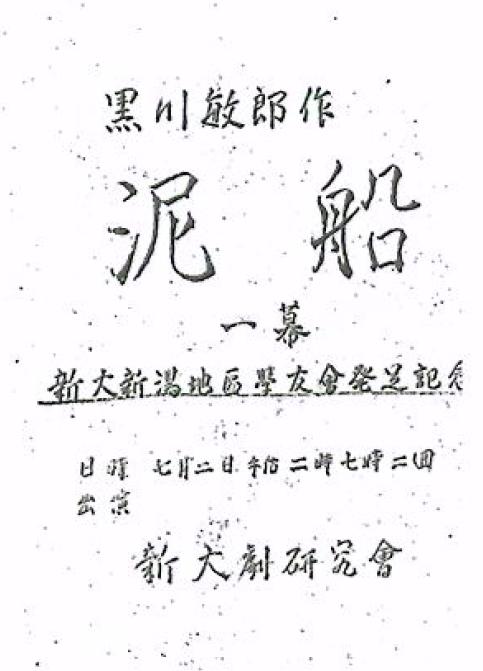 黒川敏郎作
泥船
一幕
新大新潟地区學友會発足記念
日 七月二日 二時七時二回
出演
新大劇研究會